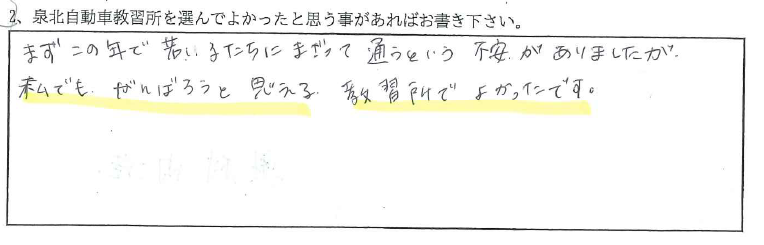 2、泉北自動車教習所を選んでよかったと思う事があればお書き下さい。
まず この年で 若い子たちに まざって 通うという 不安が ありましたが、
私でも がんばろうと 思える 教習所で よかったです。